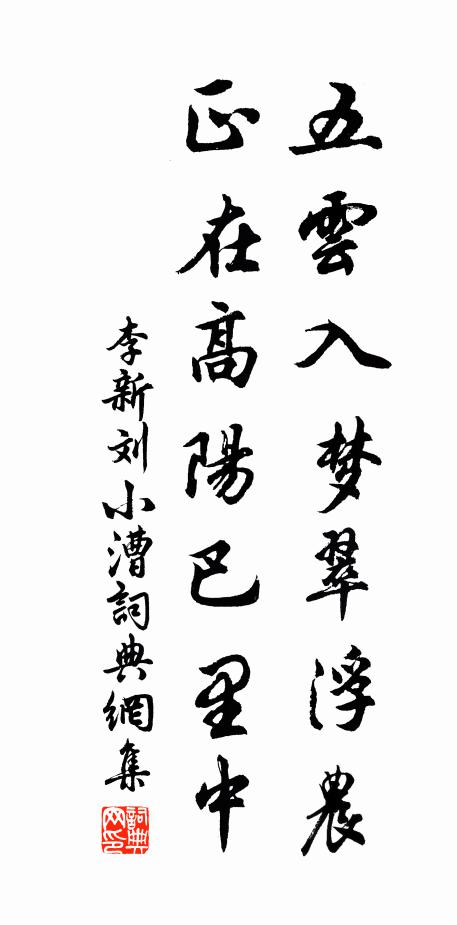 五雲入梦翠浮農
正在高陽巴里中
李新刘小漕詞典網集
詞典网印